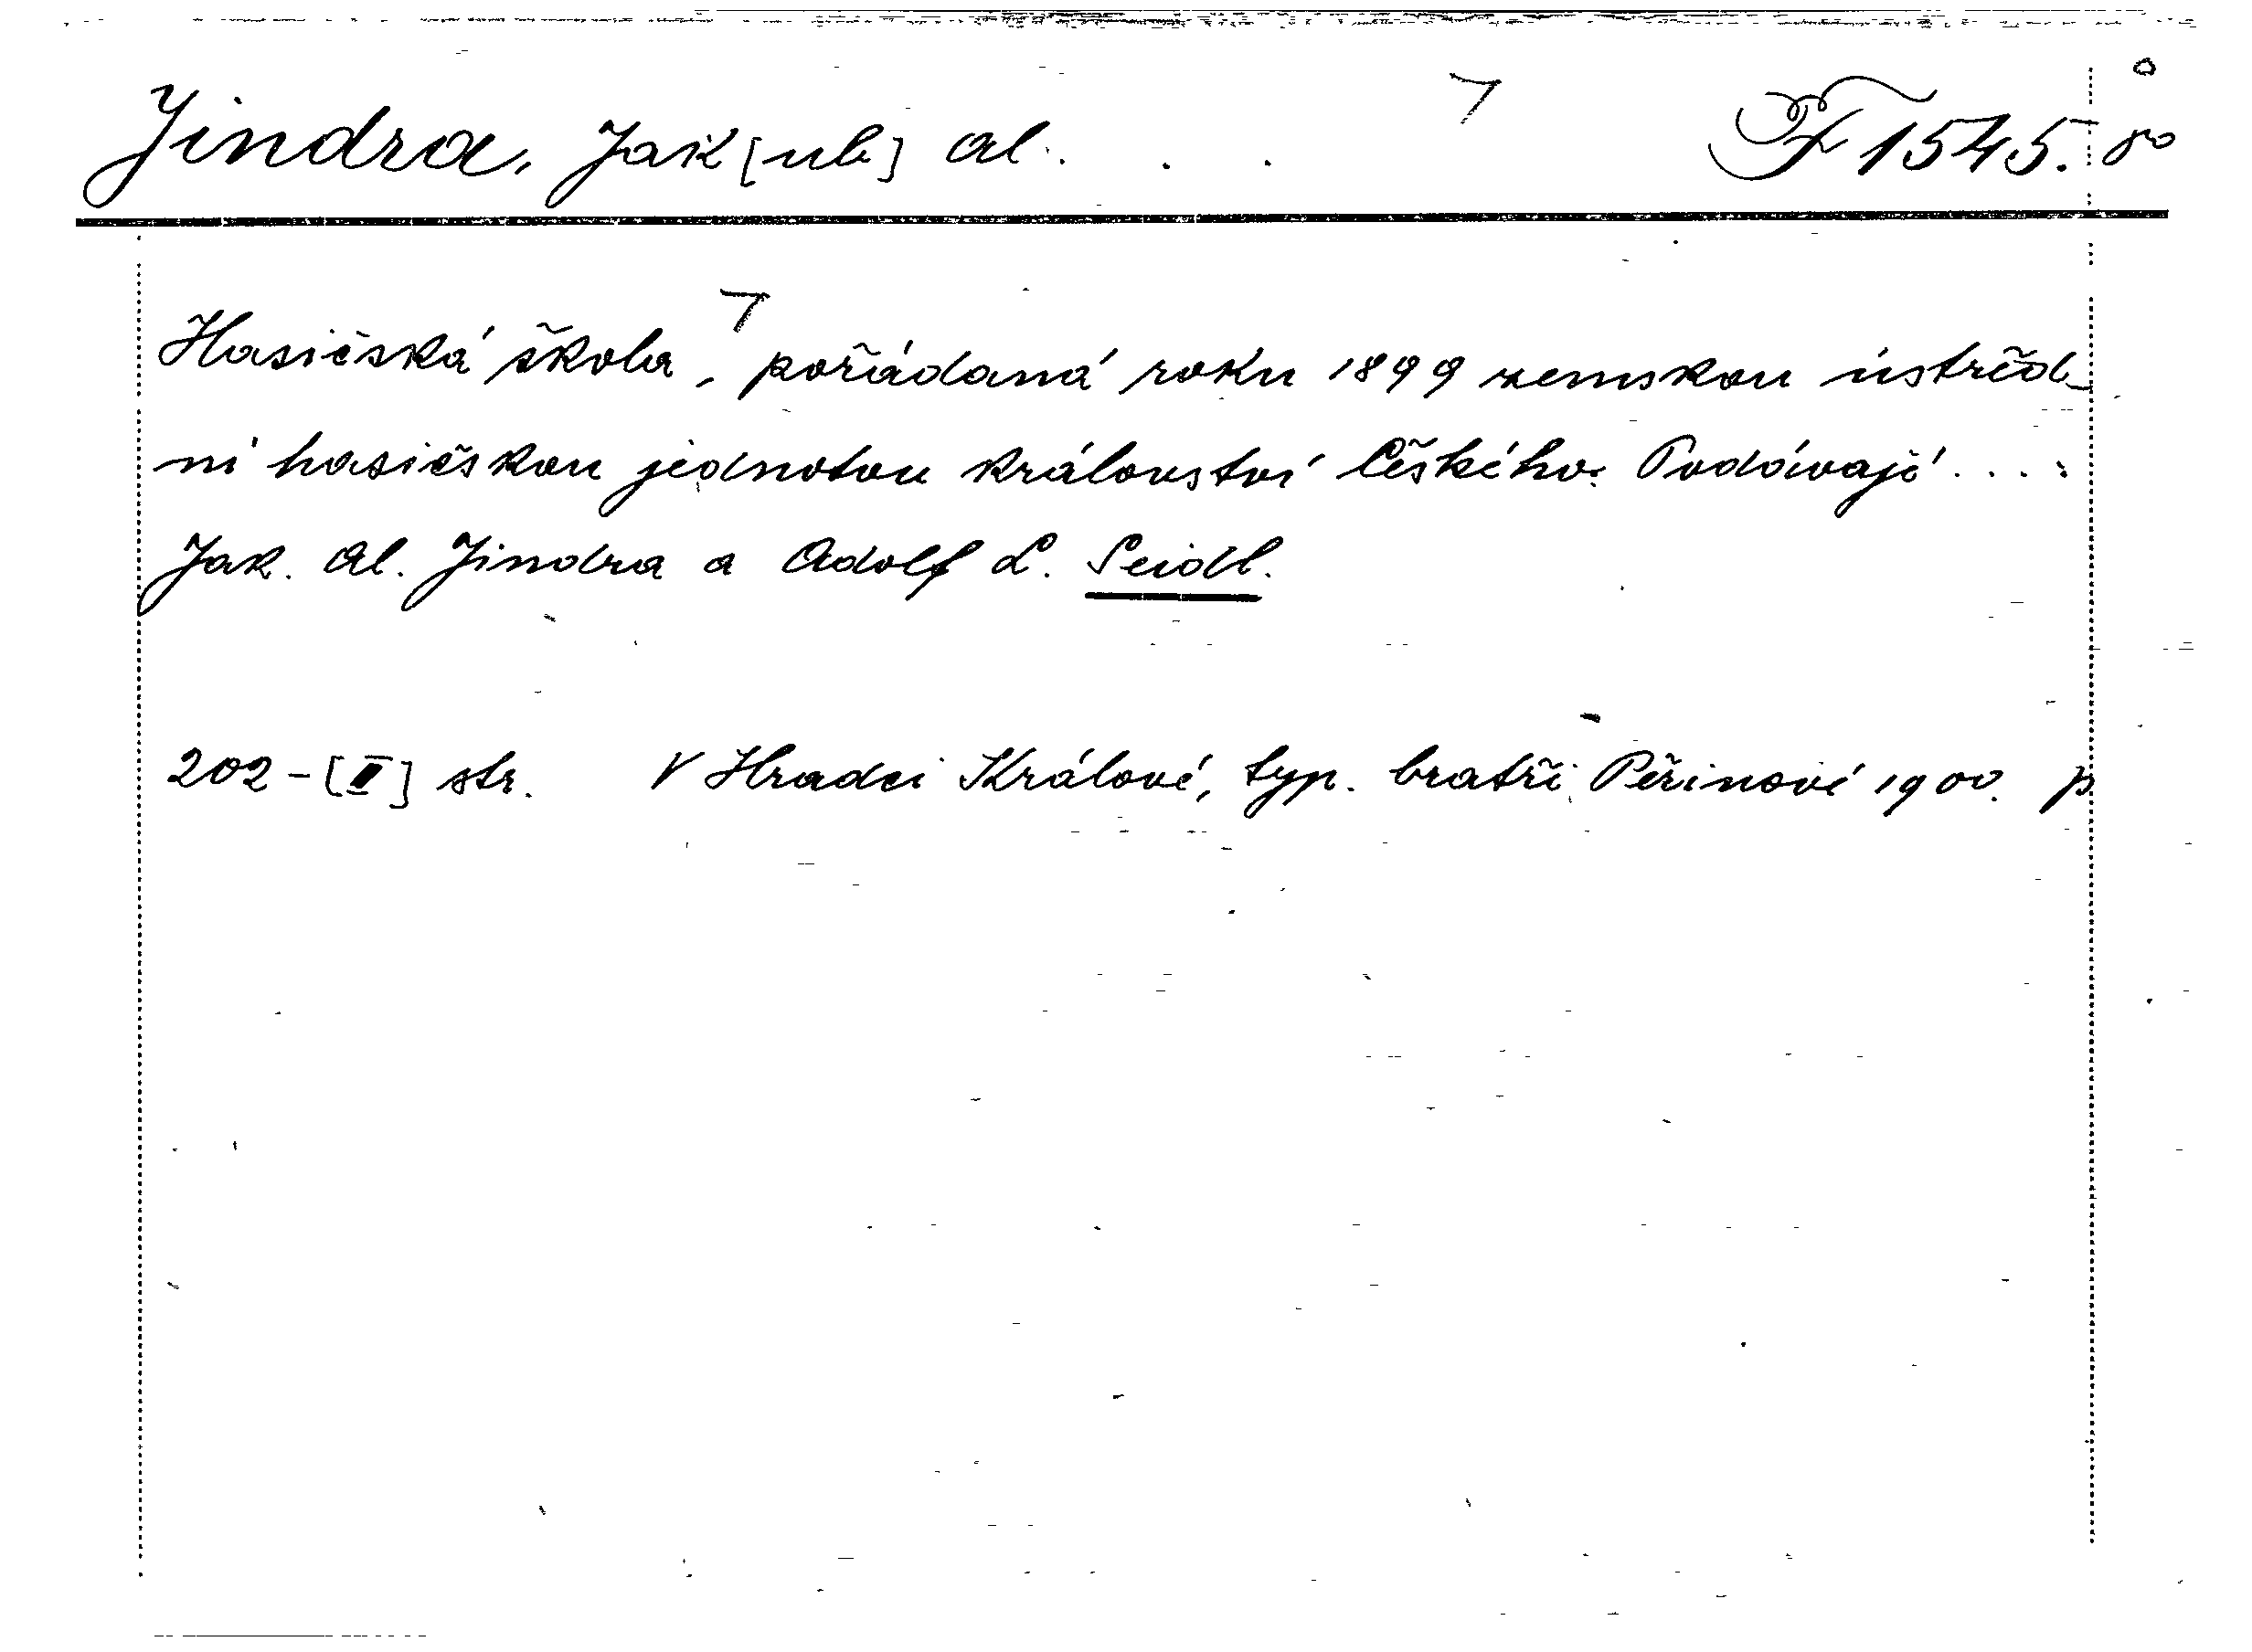 Jindra, Jak[ub] Al. . . F 1545. 8°
Hasičská škola, pořádaná roku 1899 zemskou ústřed-
ní hasičskou jednotou království Českého. Podávají ....
Jak. Al. Jindra a Adolf L. Seidl.
202-[II] str. V Hradci Králové, typ. bratři Peřinové 1900. p